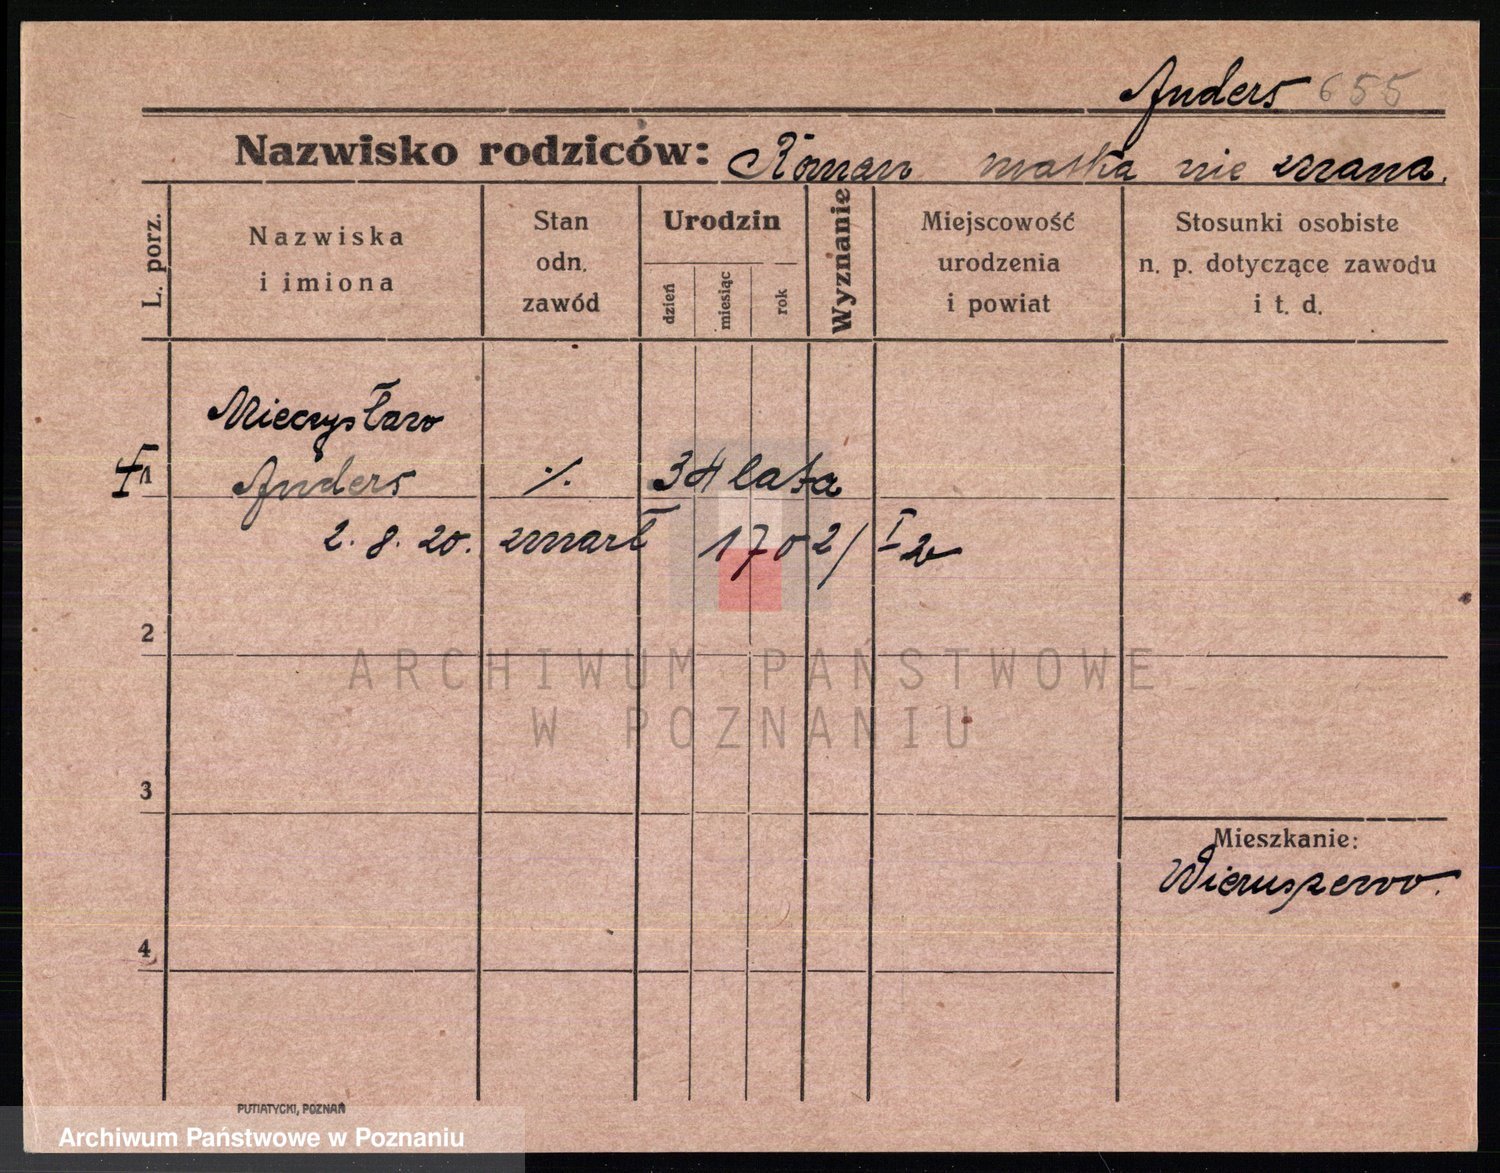 Anders 655
Nazwisko rodziców: Roman matka nie znana.
L. porz.
Nazwiska i imiona
Stan odn. zawód
Urodzin
dzień
miesiąc
rok
Wyznanie
Miejscowość urodzenia i powiat
Stosunki osobiste n. p. dotyczące zawodu i t. d.
Mieczysław
1 Anders ./. 34 lata
2. 8. 20. zmarł 1702/I
2
ARCHIWUM PAŃSTWOWE
W POZNANIU
3
Mieszkanie:
Wieruszewo.
4
PUTIATYCKI, POZNAŃ
Archiwum Państwowe w Poznaniu